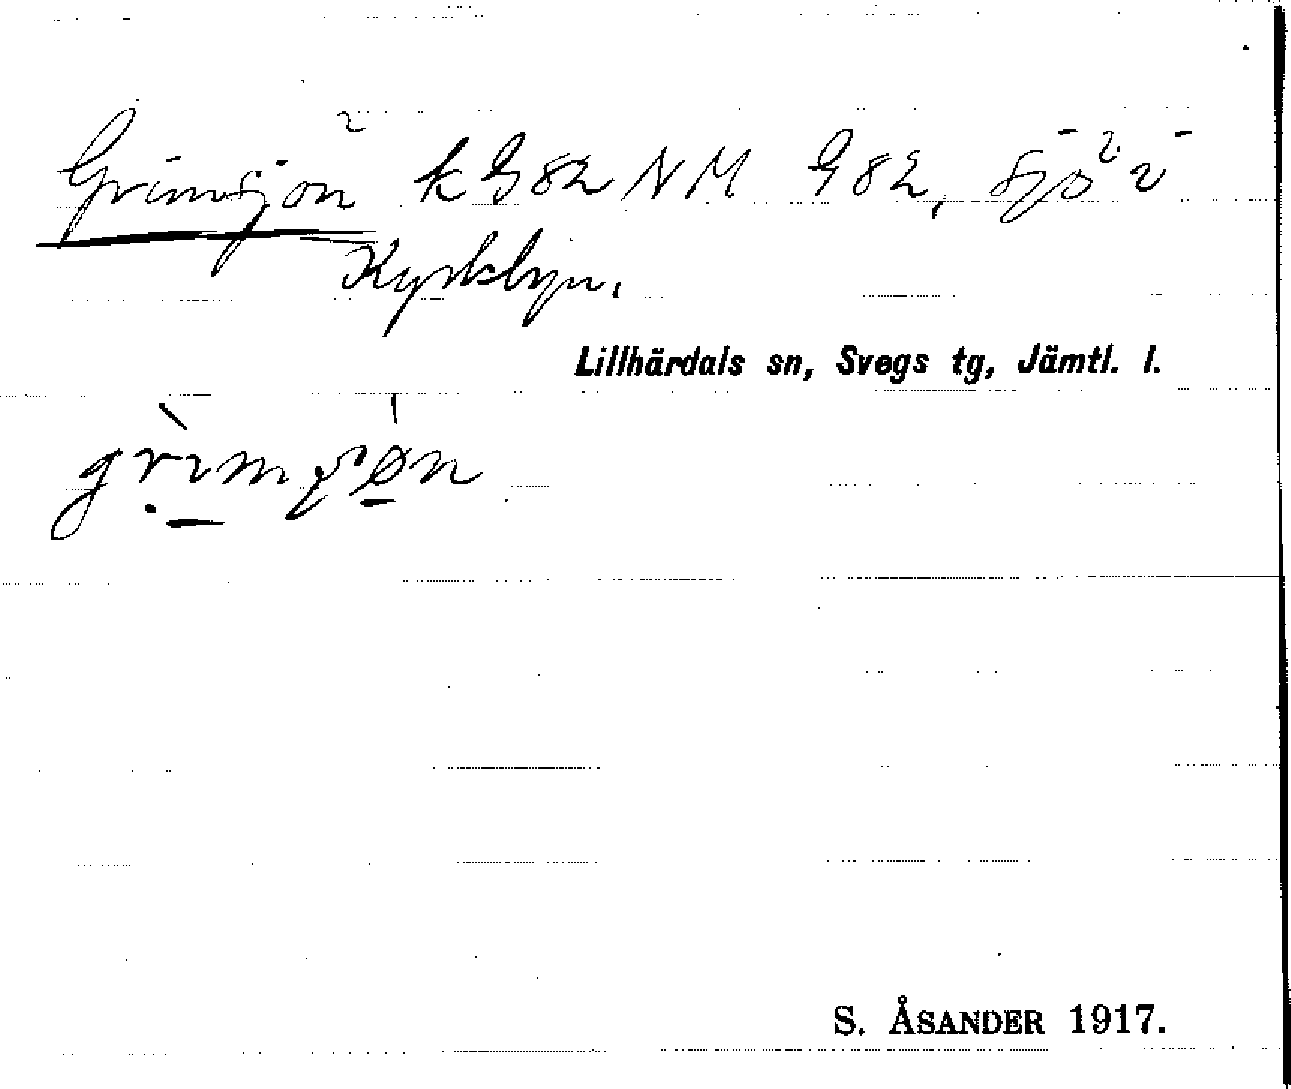 Grimsjön k G82 NM G82, sjö i
Kyrkbyn.
Lillhärdals sn, Svegs tg, Jämtl. l.
S. ÅSANDER 1917.